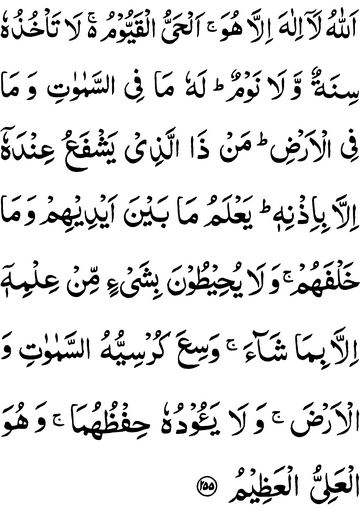 اَللّٰهُ لَاۤ اِلٰهَ اِلَّا هُوَ ۚ اَلْحَیُّ الْقَیُّوْمُ ۚ۬ لَا تَاْخُذُهٗ
سِنَةٌ وَّ لَا نَوْمٌ ؕ لَهٗ مَا فِی السَّمٰوٰتِ وَ مَا
فِی الْاَرْضِ ؕ مَنْ ذَا الَّذِیْ یَشْفَعُ عِنْدَهٗۤ
اِلَّا بِاِذْنِهٖ ؕ یَعْلَمُ مَا بَیْنَ اَیْدِیْهِمْ وَ مَا
خَلْفَهُمْ ۚ وَ لَا یُحِیْطُوْنَ بِشَیْءٍ مِّنْ عِلْمِهٖۤ
اِلَّا بِمَا شَآءَ ۚ وَسِعَ كُرْسِیُّهُ السَّمٰوٰتِ وَ
الْاَرْضَ ۚ وَ لَا یَـُٔوْدُهٗ حِفْظُهُمَا ۚ وَ هُوَ
الْعَلِیُّ الْعَظِیْمُ ﴿۲۵۵﴾